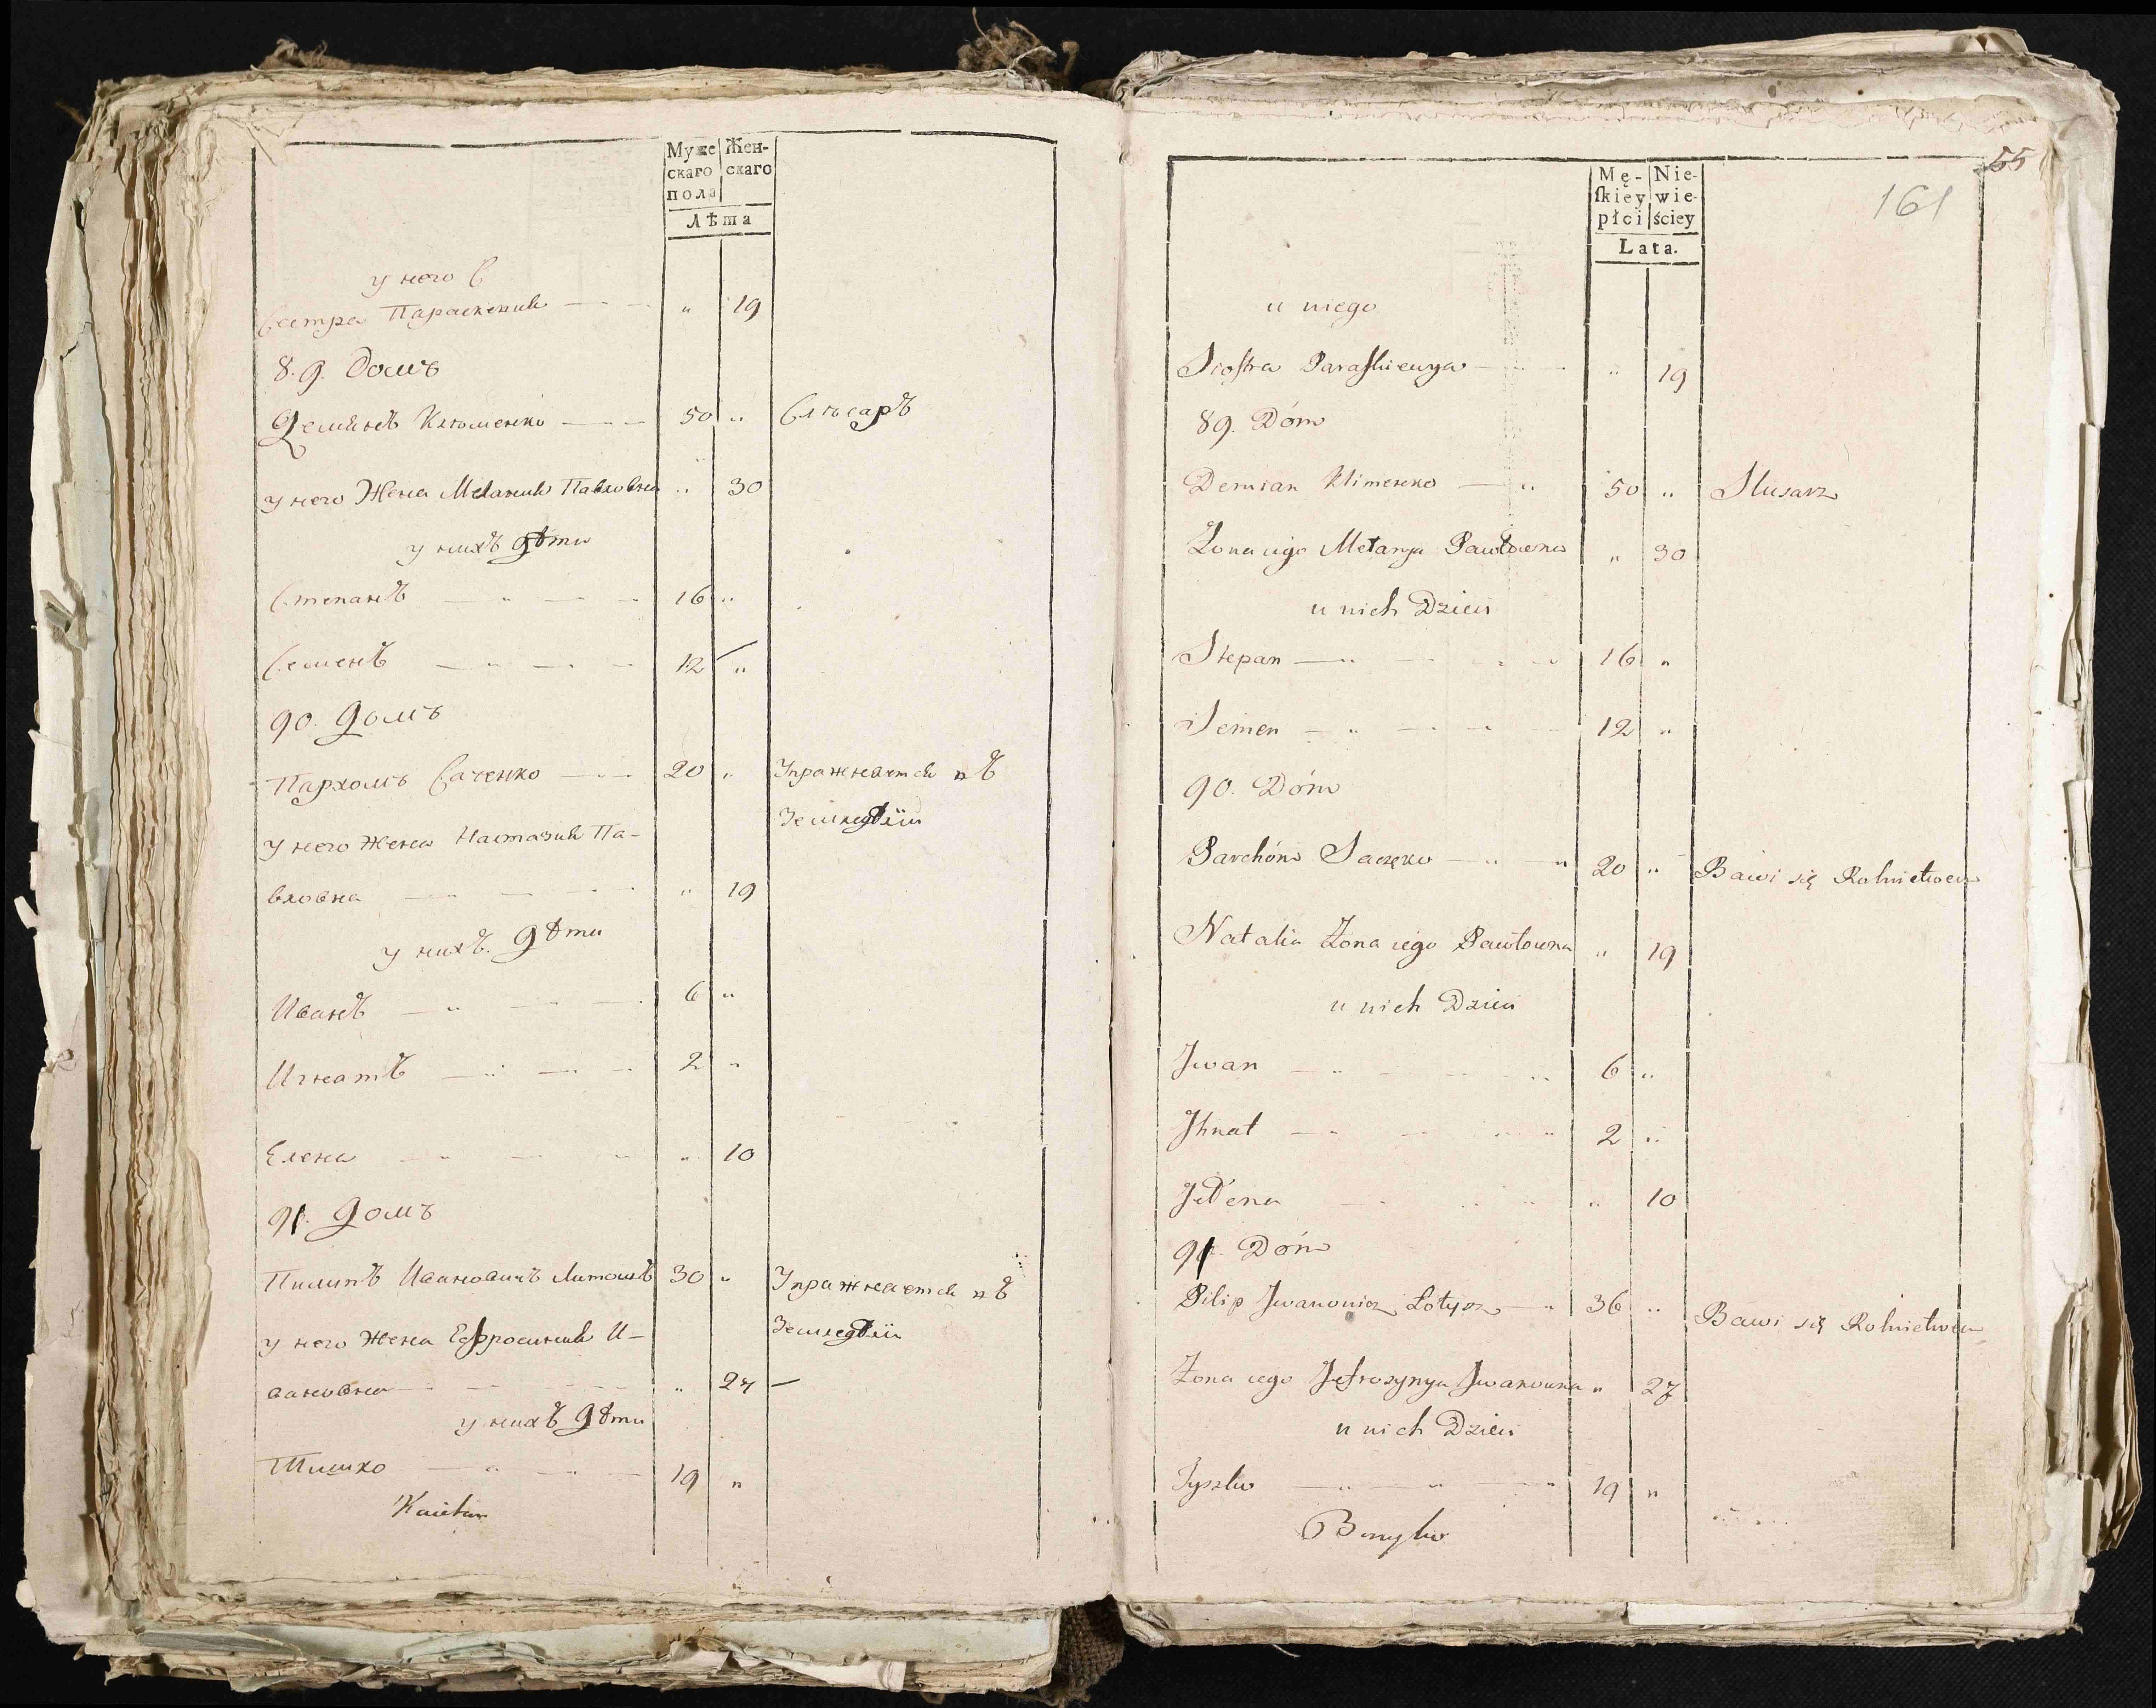 Муже Жен-
скаго скаго
пола
Лѣта
у него
Сестра Параскевия " 19
8.9. Домъ
Демянъ Клюменко 50 " Слѣсаръ
у него Жена Мелания Павловна " 30
у нихъ дѣти
Степанъ 16 "
Семенъ 12 "
90. Домъ
Пархомъ Саченко 20 " Упражняется въ
Земледѣлiи
у него Жена Настазия Па-
вловна " 19
у нихъ дѣти
Иванъ 6 "
Игнатъ 2 "
Елена " 10
91. Домъ
Пилипъ Ивановичъ 30 " Упражняется въ
Земледѣлiи
у него Жена Ефросиния И-
вановна " 27
у нихъ дѣти
Тишко 19 "
55
161
Mę- Nie-
ſkiey wie-
płci ściey
Lata.
u niego
Siostra Paraskiewya " 19
89. Dóm
Demian Klimenko 50 " Slusarz
Żona iego Melanya Pawłowna " 30
u nich Dzieci
Stepan 16 "
Semen 12 "
90. Dóm
Parchóm Saczęko 20 " Bawi się Rolnictwem
Natalia Żona iego Pawłowna " 19
u nich Dzieci
Jwan 6 "
Jhnat 2 "
Jełena " 10
91. Dóm
Pilip Jwanowicz Łotysz 36 " Bawi się Rolnictwem
Żona iego Jefrosynya Jwanowna " 27
u nich Dzieci
Tyszko 19 "